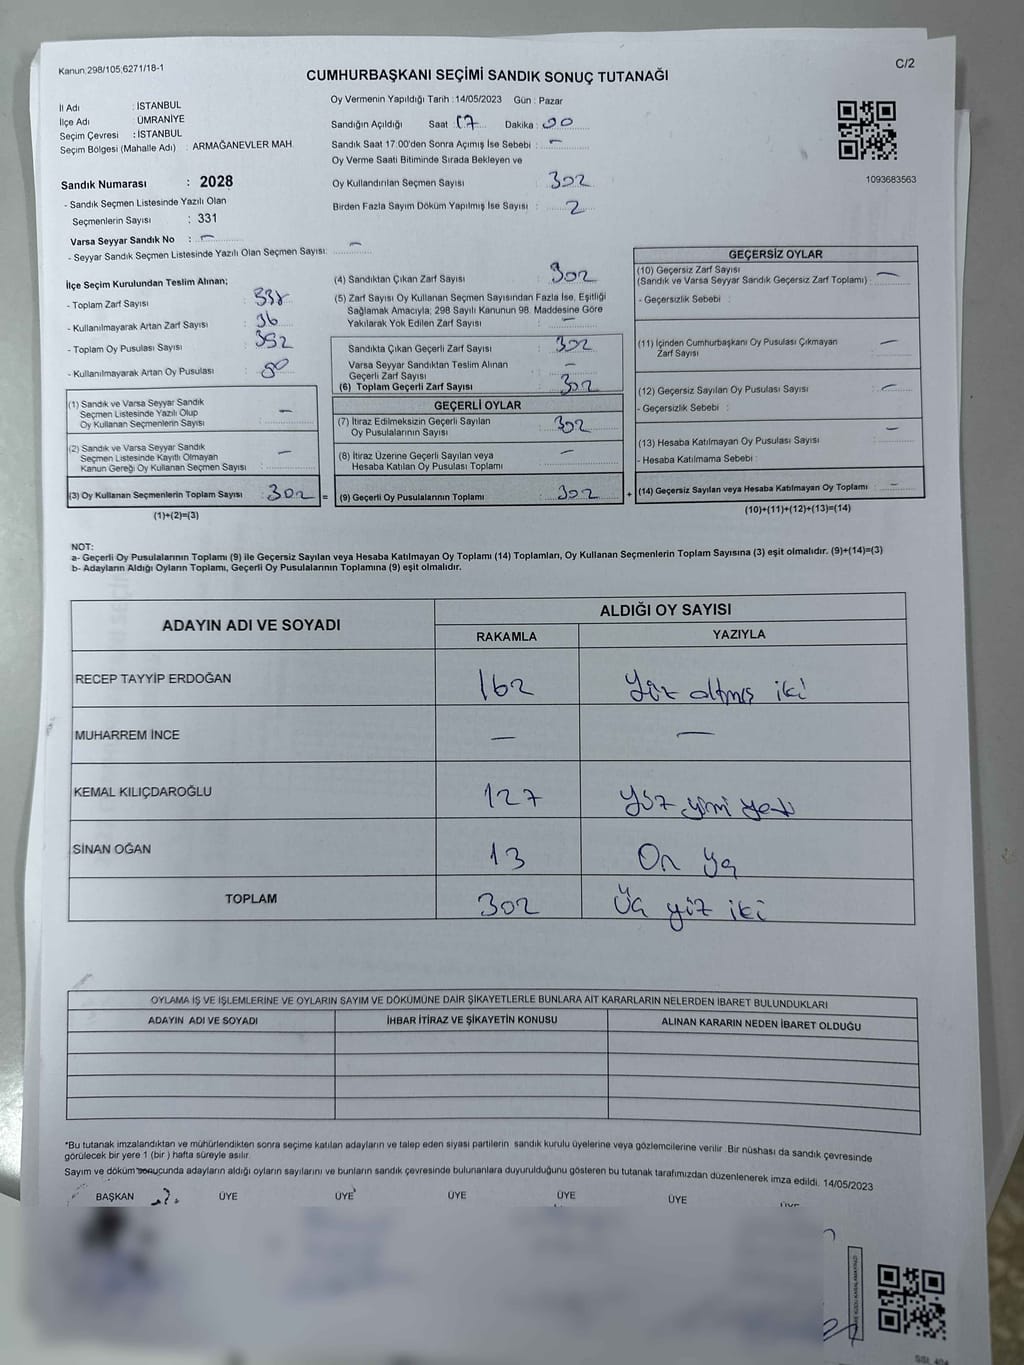 Kanun 298/105;6271/18-1
C/2
CUMHURBAŞKANI SEÇİMİ SANDIK SONUÇ TUTANAĞI
İl Adı : İSTANBUL
İlçe Adı : ÜMRANİYE
Seçim Çevresi : İSTANBUL
Seçim Bölgesi (Mahalle Adı) : ARMAĞANEVLER MAH.
Sandık Numarası : 2028
- Sandık Seçmen Listesinde Yazılı Olan
Seçmenlerin Sayısı : 331
Varsa Seyyar Sandık No : —
- Seyyar Sandık Seçmen Listesinde Yazılı Olan Seçmen Sayısı: —
Oy Vermenin Yapıldığı Tarih :14/05/2023 Gün : Pazar
Sandığın Açıldığı Saat : 17 Dakika : 00
Sandık Saat 17:00'den Sonra Açımış İse Sebebi : —
Oy Verme Saati Bitiminde Sırada Bekleyen ve
Oy Kullandırılan Seçmen Sayısı 302
Birden Fazla Sayım Döküm Yapılmış İse Sayısı : 2
1093683563
İlçe Seçim Kurulundan Teslim Alınan;
- Toplam Zarf Sayısı : 338
- Kullanılmayarak Artan Zarf Sayısı : 36
- Toplam Oy Pusulası Sayısı : 352
- Kullanılmayarak Artan Oy Pusulası :
(1) Sandık ve Varsa Seyyar Sandık
Seçmen Listesinde Yazılı Olup
Oy Kullanan Seçmenlerin Sayısı : —
(2) Sandık ve Varsa Seyyar Sandık
Seçmen Listesinde Kayıtlı Olmayan
Kanun Gereği Oy Kullanan Seçmen Sayısı : —
(3) Oy Kullanan Seçmenlerin Toplam Sayısı : 302 =
(1)+(2)=(3)
(4) Sandıktan Çıkan Zarf Sayısı : 302
(5) Zarf Sayısı Oy Kullanan Seçmen Sayısından Fazla İse, Eşitliği
Sağlamak Amacıyla; 298 Sayılı Kanunun 98. Maddesine Göre
Yakılarak Yok Edilen Zarf Sayısı : —
Sandıkta Çıkan Geçerli Zarf Sayısı : 302
Varsa Seyyar Sandıktan Teslim Alınan
Geçerli Zarf Sayısı : —
(6) Toplam Geçerli Zarf Sayısı : 302
GEÇERLİ OYLAR
(7) İtiraz Edilmeksizin Geçerli Sayılan
Oy Pusulalarının Sayısı : 302
(8) İtiraz Üzerine Geçerli Sayılan veya
Hesaba Katılan Oy Pusulası Toplamı : —
(9) Geçerli Oy Pusulalarının Toplamı : 302 +
GEÇERSİZ OYLAR
(10) Geçersiz Zarf Sayısı
(Sandık ve Varsa Seyyar Sandık Geçersiz Zarf Toplamı) : —
- Geçersizlik Sebebi :
(11) İçinden Cumhurbaşkanı Oy Pusulası Çıkmayan
Zarf Sayısı : —
(12) Geçersiz Sayılan Oy Pusulası Sayısı : —
- Geçersizlik Sebebi :
(13) Hesaba Katılmayan Oy Pusulası Sayısı : —
- Hesaba Katılmama Sebebi :
(14) Geçersiz Sayılan veya Hesaba Katılmayan Oy Toplamı : —
(10)+(11)+(12)+(13)=(14)
NOT:
a- Geçerli Oy Pusulalarının Toplamı (9) ile Geçersiz Sayılan veya Hesaba Katılmayan Oy Toplamı (14) Toplamları, Oy Kullanan Seçmenlerin Toplam Sayısına (3) eşit olmalıdır. (9)+(14)=(3)
b- Adayların Aldığı Oyların Toplamı, Geçerli Oy Pusulalarının Toplamına (9) eşit olmalıdır.
ADAYIN ADI VE SOYADI ALDIĞI OY SAYISI
RAKAMLA YAZIYLA
RECEP TAYYİP ERDOĞAN 162 Yüz altmış iki
MUHARREM İNCE — —
KEMAL KILIÇDAROĞLU 127 Yüz yirmi yedi
SİNAN OĞAN 13 On üç
TOPLAM 302 Üç yüz iki
OYLAMA İŞ VE İŞLEMLERİNE VE OYLARIN SAYIM VE DÖKÜMÜNE DAİR ŞİKAYETLERLE BUNLARA AİT KARARLARIN NELERDEN İBARET BULUNDUKLARI
ADAYIN ADI VE SOYADI İHBAR İTİRAZ VE ŞİKAYETİN KONUSU ALINAN KARARIN NEDEN İBARET OLDUĞU
*Bu tutanak imzalandıktan ve mühürlendikten sonra seçime katılan adayların ve talep eden siyasi partilerin sandık kurulu üyelerine veya gözlemcilerine verilir. Bir nüshası da sandık çevresinde
görülecek bir yere 1 (bir ) hafta süreyle asılır.
Sayım ve döküm sonucunda adayların aldığı oyların sayılarını ve bunların sandık çevresinde bulunanlara duyurulduğunu gösteren bu tutanak tarafımızdan düzenlenerek imza edildi. 14/05/2023
BAŞKAN ÜYE ÜYE ÜYE ÜYE ÜYE ÜYE